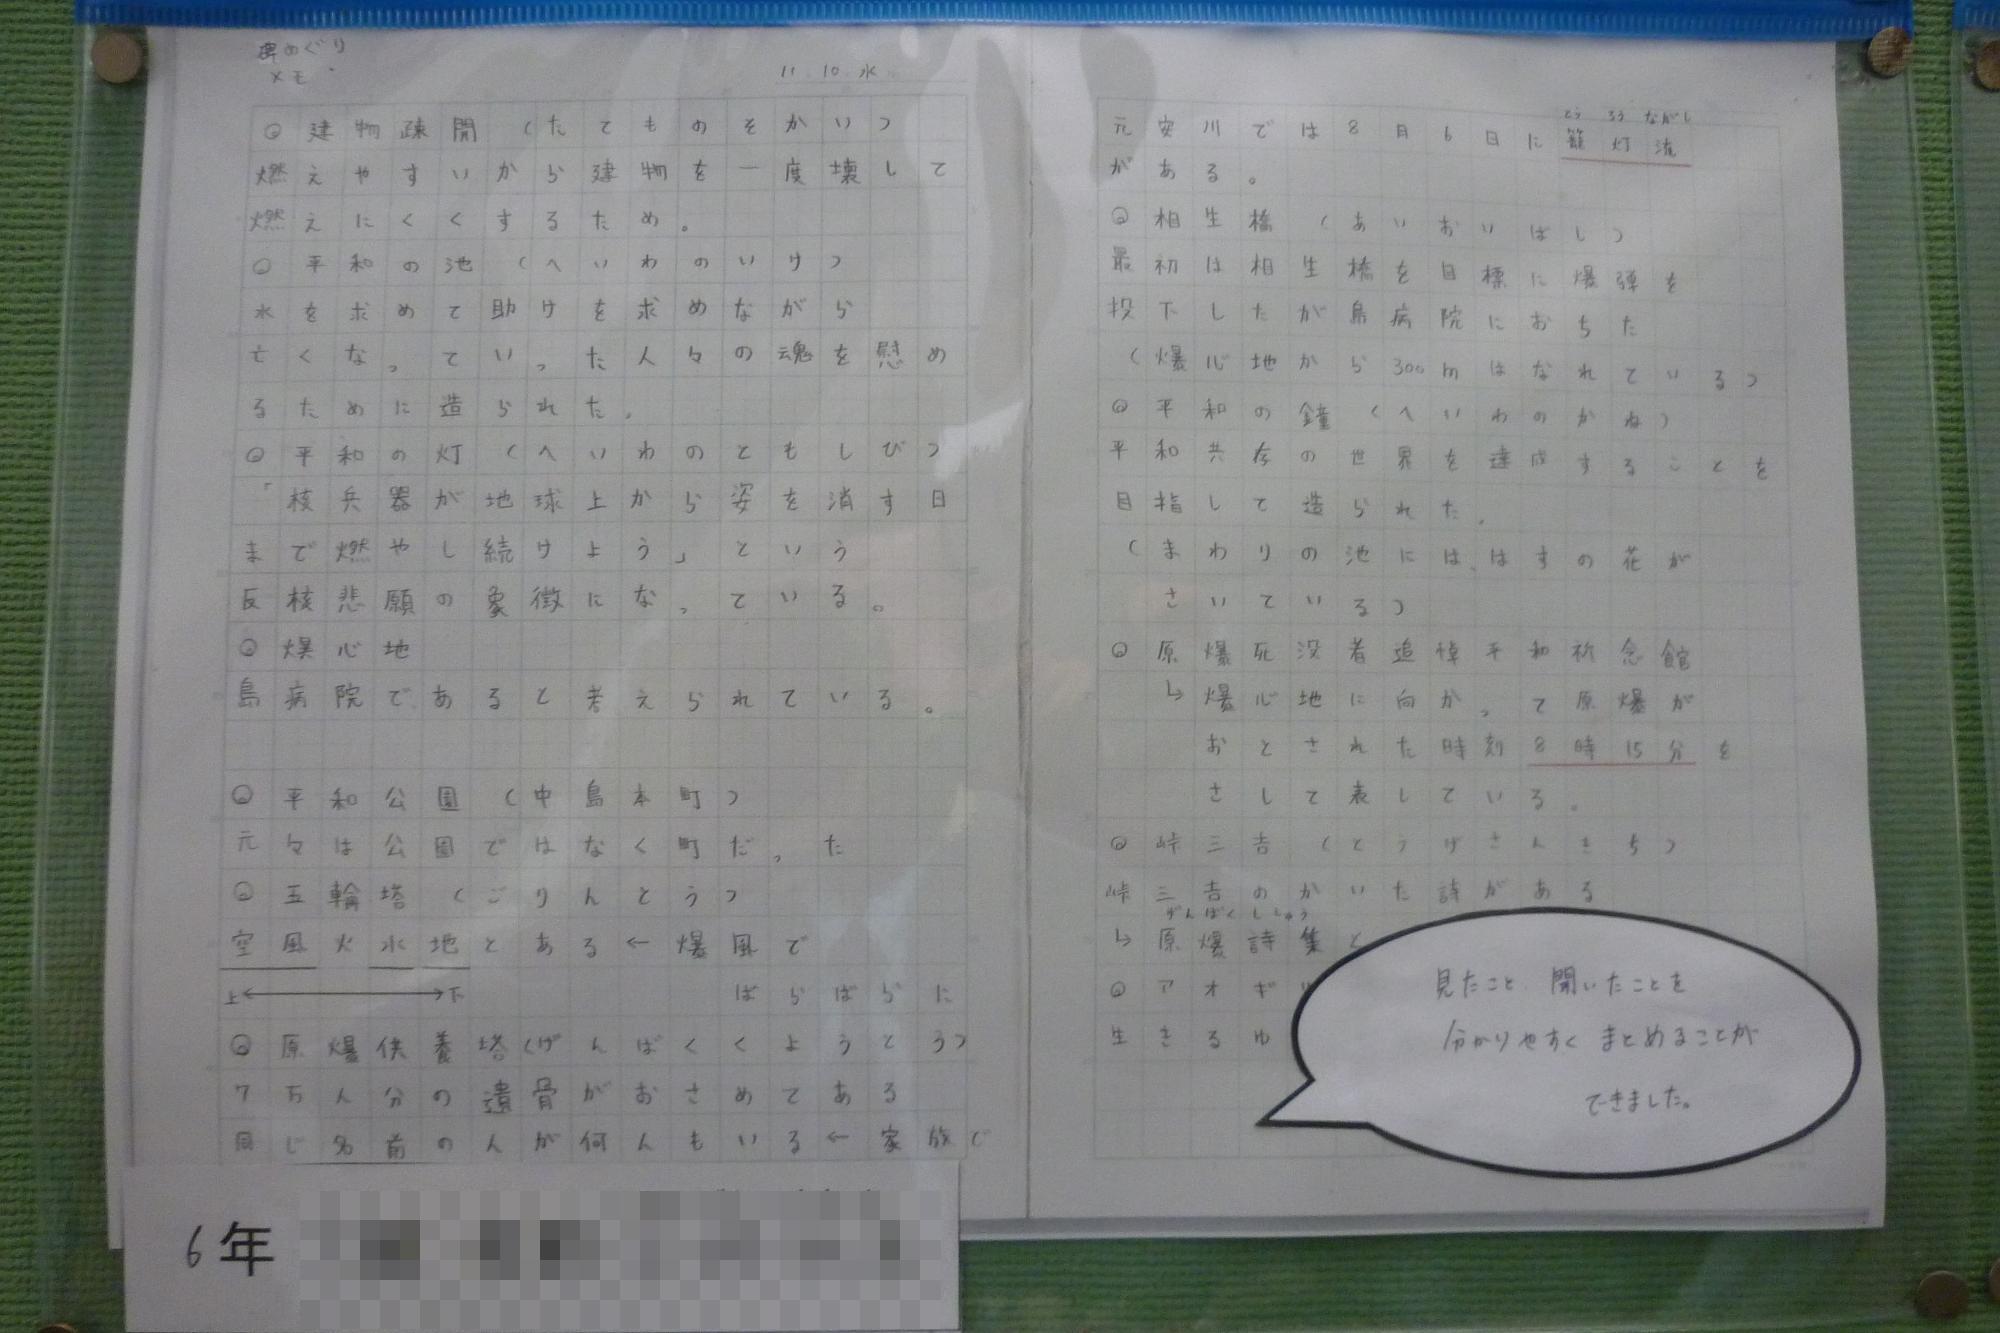 碑めぐり
メモ
11.10.水
◎建物疎開(たてものそかい)
燃えやすいから建物を一度壊して
燃えにくくするため。
◎平和の池(へいわのいけ)
水を求めて助けを求めながら
亡くなっていった人々の魂を慰め
るために造られた。
◎平和の灯(へいわのともしび)
「核兵器が地球上から姿を消す日
まで燃やし続けよう」という
反核悲願の象徴になっている。
◎爆心地
島病院であると考えられている。
◎平和公園(中島本町)
元々は公園ではなく町だった
◎五輪塔(ごりんとう)
空風火水地とある←爆風で
上←→下 ばらばらに
◎原爆供養塔(げんばくくようとう)
7万人分の遺骨がおさめてある
同じ名前の人が何人もいる←家族で
6年
元安川では8月6日に籠灯流
とうろうながし
がある。
◎相生橋(あいおいばし)
最初は相生橋を目標に爆弾を
投下したが島病院におちた
(爆心地から300mはなれている)
◎平和の鐘(へいわのかね)
平和共存の世界を達成することを
目指して造られた。
(まわりの池には、はすの花が
さいている)
◎原爆死没者追悼平和祈念館
↳爆心地に向かって原爆が
おとされた時刻8時15分を
さして表している。
◎峠三吉(とうげさんきち)
峠三吉のかいた詩がある
げんばくししゅう
↳原爆詩集と
◎アオギ
生きるゆ
見たこと、聞いたことを
分かりやすくまとめることが
できました。